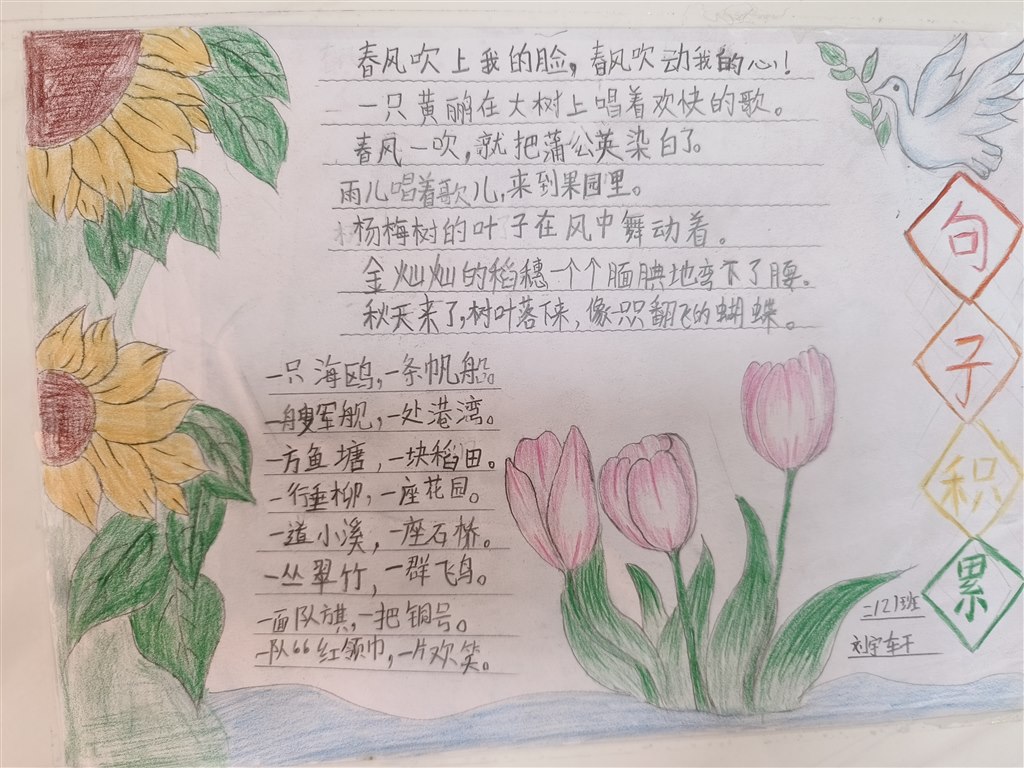 春风吹上我的脸，春风吹动我的心！
一只黄鹂在大树上唱着欢快的歌。
春风一吹，就把蒲公英染白了。
雨儿唱着歌儿，来到果园里。
杨梅树的叶子在风中舞动着。
金灿灿的稻穗一个个腼腆地弯下了腰。
秋天来了，树叶落下来，像一只只翻飞的蝴蝶。
一只海鸥，一条帆船。
一艘军舰，一处港湾。
一方鱼塘，一块稻田。
一行垂柳，一座花园。
一道小溪，一座石桥。
一丛翠竹，一群飞鸟。
一面队旗，一把铜号。
一队“红领巾，一片欢笑。
句
子
积
累
二121班
刘宇轩